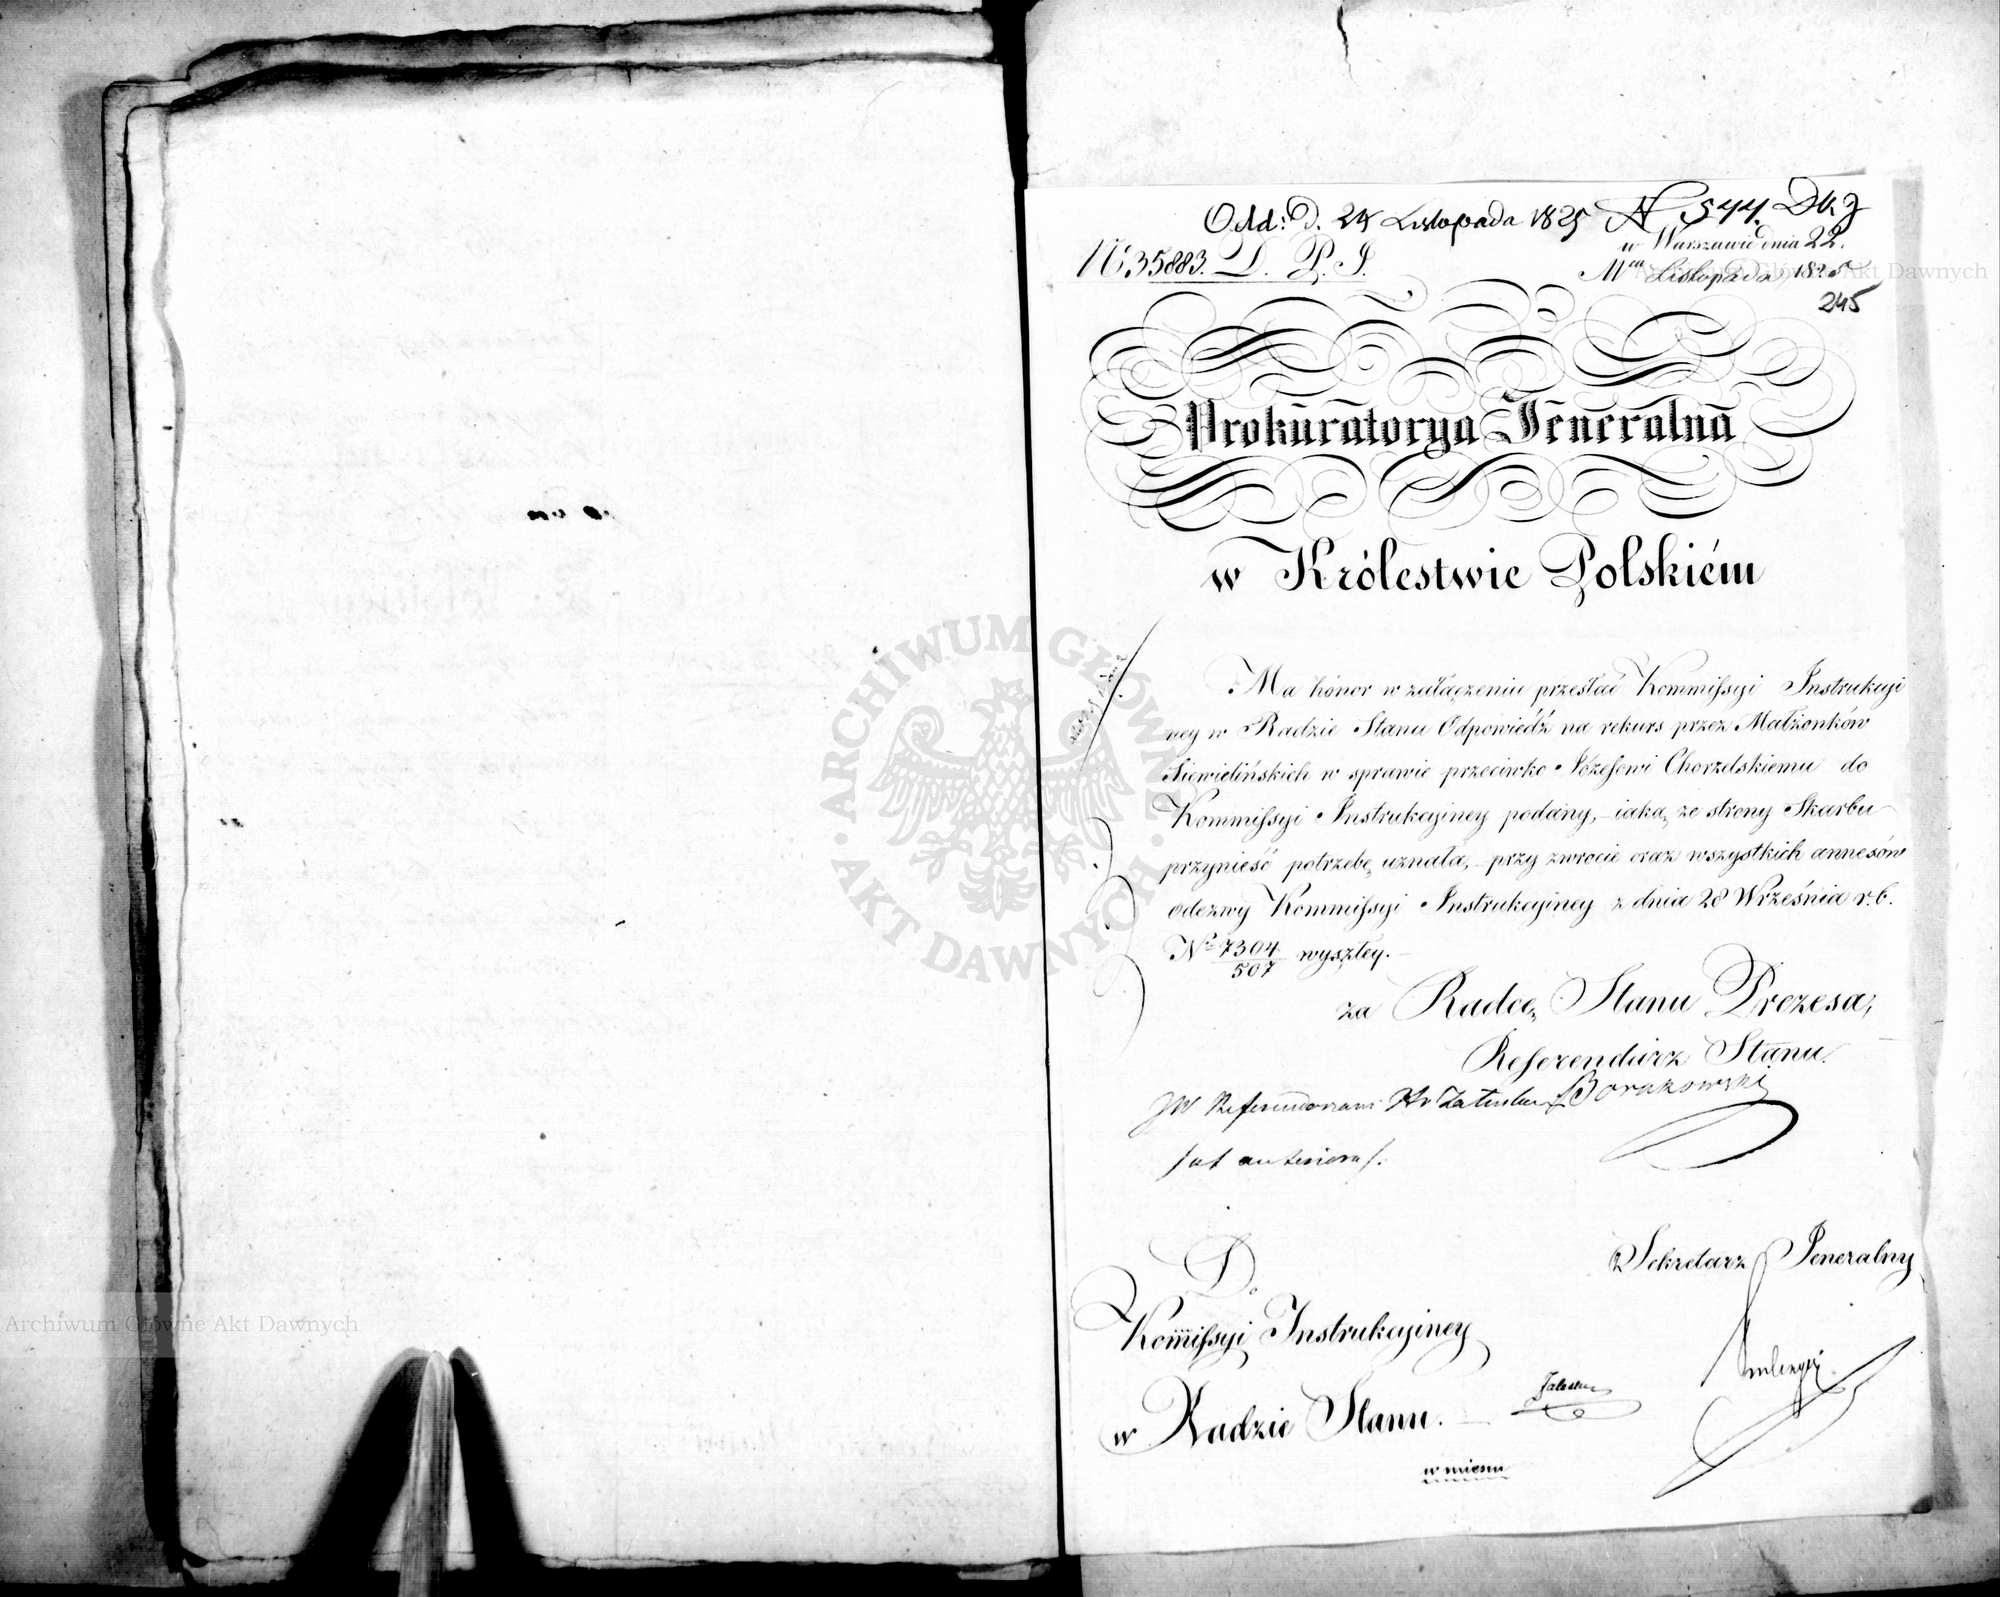 Odd: D. 24 Listopada 1825 N 544. Dk. J
w Warszawie dnia 22.
No 35883. D. P. J.
Mca Listopada 1825
245
Prokuratorya Jeneralna
w Królestwie Polskiém
Ma honor w załączeniu przesłać Kommissyi Instrukcyi
ney w Radzie Stanu Odpowiedź na rekurs przez Małżonków
Niewielińskich w sprawie przeciwko Józefowi Chorzelskiemu do
Kommissyi Instrukcyiney podany, iaką ze strony Skarbu
przynieść potrzebę uznała, przy zwrocie oraz wszystkich annexów
odezwy Kommissyi Instrukcyiney z dnia 28 Września r. b.
No 7304/507 wyszłey.
za Radcę Stanu Prezesa,
Referendarz Stanu.
JW Referendarz Borakowski
Do
Sekretarz Jeneralny
Kommissyi Instrukcyiney
w Radzie Stanu.
w miescu
ARCHIWUM GŁÓWNE AKT DAWNYCH
Archiwum Główne Akt Dawnych
Archiwum Główne Akt Dawnych